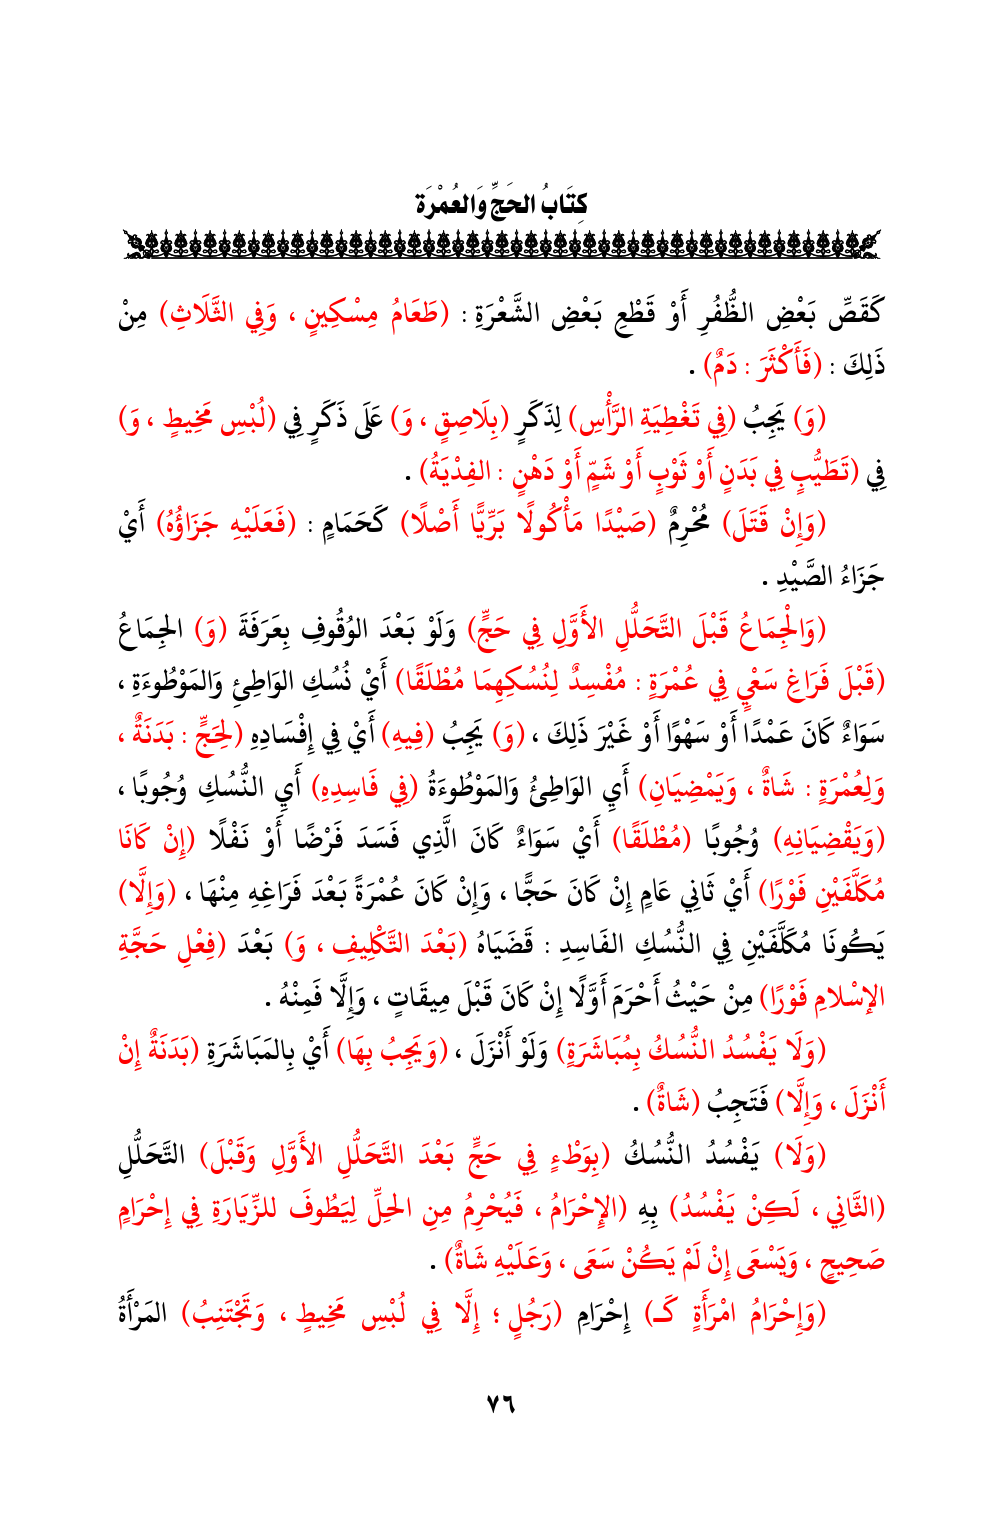 كِتَابُ الحَجِّ وَالعُمْرَة
كَقَصِّ بَعْضِ الظُّفُرِ أَوْ قَطْعِ بَعْضِ الشَّعْرَةِ : (طَعَامُ مِسْكِينٍ ، وَفِي الثَّلَاثِ) مِنْ
ذَلِكَ : (فَأَكْثَرَ : دَمٌ) .
(وَ) يَجِبُ (فِي تَغْطِيَةِ الرَّأْسِ) لِذَكَرٍ (بِلَاصِقٍ ، وَ) عَلَى ذَكَرٍ فِي (لُبْسِ مَخِيطٍ ، وَ)
فِي (تَطَيُّبٍ فِي بَدَنٍ أَوْ ثَوْبٍ أَوْ شَمٍّ أَوْ دَهْنٍ : الفِدْيَةُ) .
(وَإِنْ قَتَلَ) مُحْرِمٌ (صَيْدًا مَأْكُولًا بَرِّيًّا أَصْلًا) كَحَمَامٍ : (فَعَلَيْهِ جَزَاؤُهُ) أَيْ
جَزَاءُ الصَّيْدِ .
(وَالْجِمَاعُ قَبْلَ التَّحَلُّلِ الأَوَّلِ فِي حَجٍّ) وَلَوْ بَعْدَ الوُقُوفِ بِعَرَفَةَ (وَ) الجِمَاعُ
(قَبْلَ فَرَاغِ سَعْيٍ فِي عُمْرَةٍ : مُفْسِدٌ لِنُسُكِهِمَا مُطْلَقًا) أَيْ نُسُكِ الوَاطِئِ وَالمَوْطُوءَةِ ،
سَوَاءٌ كَانَ عَمْدًا أَوْ سَهْوًا أَوْ غَيْرَ ذَلِكَ ، (وَ) يَجِبُ (فِيهِ) أَيْ فِي إِفْسَادِهِ (لِحَجٍّ : بَدَنَةٌ ،
وَلِعُمْرَةٍ : شَاةٌ ، وَيَمْضِيَانِ) أَيِ الوَاطِئُ وَالمَوْطُوءَةُ (فِي فَاسِدِهِ) أَيِ النُّسُكِ وُجُوبًا ،
(وَيَقْضِيَانِهِ) وُجُوبًا (مُطْلَقًا) أَيْ سَوَاءٌ كَانَ الَّذِي فَسَدَ فَرْضًا أَوْ نَفْلًا (إِنْ كَانَا
مُكَلَّفَيْنِ فَوْرًا) أَيْ ثَانِي عَامٍ إِنْ كَانَ حَجًّا ، وَإِنْ كَانَ عُمْرَةً بَعْدَ فَرَاغِهِ مِنْهَا ، (وَإِلَّا)
يَكُونَا مُكَلَّفَيْنِ فِي النُّسُكِ الفَاسِدِ : قَضَيَاهُ (بَعْدَ التَّكْلِيفِ ، وَ) بَعْدَ (فِعْلِ حَجَّةِ
الإسْلامِ فَوْرًا) مِنْ حَيْثُ أَحْرَمَ أَوَّلًا إِنْ كَانَ قَبْلَ مِيقَاتٍ ، وَإِلَّا فَمِنْهُ .
(وَلَا يَفْسُدُ النُّسُكُ بِمُبَاشَرَةٍ) وَلَوْ أَنْزَلَ ، (وَيَجِبُ بِهَا) أَيْ بِالمَبَاشَرَةِ (بَدَنَةٌ إِنْ
أَنْزَلَ ، وَإِلَّا) فَتَجِبُ (شَاةٌ) .
(وَلَا) يَفْسُدُ النُّسُكُ (بِوَطْءٍ فِي حَجٍّ بَعْدَ التَّحَلُّلِ الأَوَّلِ وَقَبْلَ) التَّحَلُّلِ
(الثَّانِي ، لَكِنْ يَفْسُدُ) بِهِ (الإِحْرَامُ ، فَيُحْرِمُ مِنِ الحِلِّ لِيَطُوفَ للزِّيَارَةِ فِي إِحْرَامٍ
صَحِيحٍ ، وَيَسْعَى إِنْ لَمْ يَكُنْ سَعَى ، وَعَلَيْهِ شَاةٌ) .
(وَإِحْرَامُ امْرَأَةٍ كَـ) إِحْرَامِ (رَجُلٍ ؛ إِلَّا فِي لُبْسِ مَخِيطٍ ، وَتَجْتَنِبُ) المَرْأَةُ
٧٦